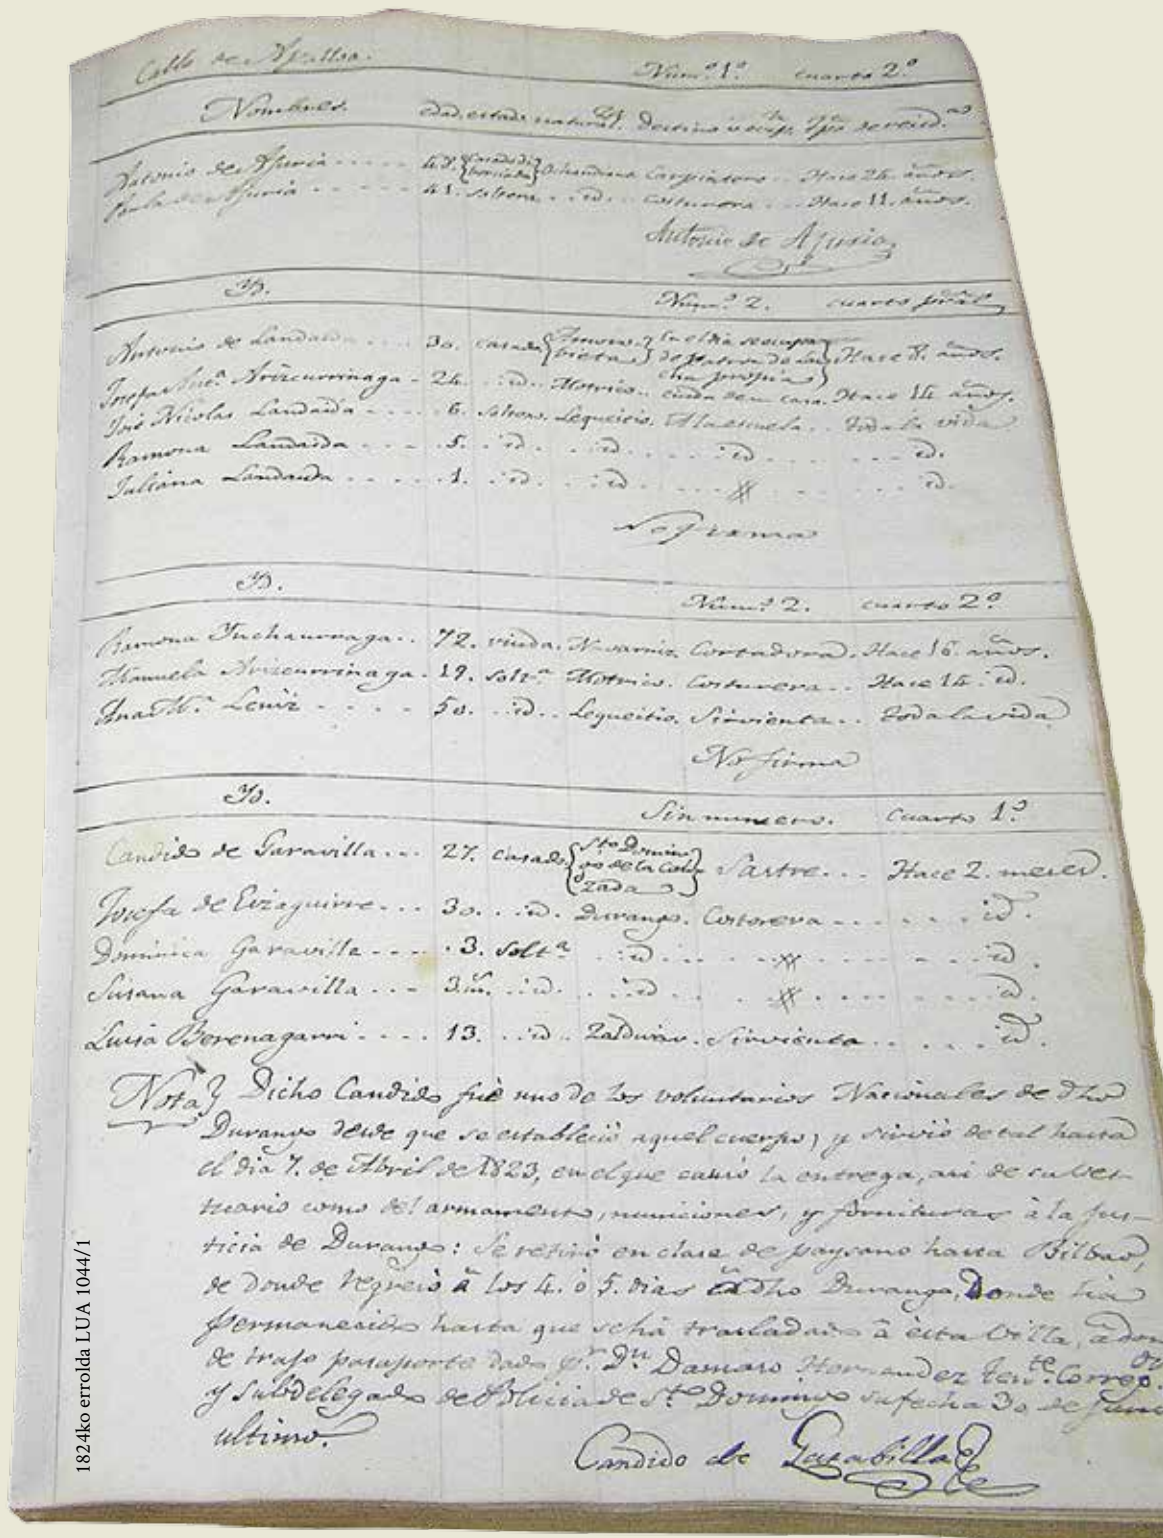 Calle de Apallua. Num.º 1.º cuarto 2.º
Nombres. edad. estado. natural. Destino u ocup. Tpo de resid.
Antonio de Ajuria Ochandiano Carpintero Hace 24 años.
Paula de Ajuria 41. soltera id. costurera Hace 11. años.
Antonio de Ajuria
Yd. Num.º 2. cuarto pral
Antonio de Landaida 30. casado En el dia se ocupa de patron de lancha propia Hace 8. años.
Josefa Arizcurrinaga 24. id. Motrico. cuida de su casa. Hace 14 años.
José Nicolas Landaida 6. soltero. Lequeitio. A la escuela. toda la vida
Ramona Landaida 5. id. id. id. id.
Juliana Landaida 1. id. id. id.
No firma
Yd. Num.º 2. cuarto 2.º
Ramona Inchaurraga. 72. viuda. Navarniz. Cortadora. Hace 16 años.
Manuela Arizcurrinaga. 19. solt.ª Motrico. Costurera. Hace 14 id.
Ana M.ª Leniz 50. id. Lequeitio. Sirvienta. toda la vida
No firma
Yd. Sin numero. Cuarto 1.º
Candido de Garavilla 27. casado. Sto Domingo de la Calzada Sastre. Hace 2. meses.
Josefa de Eizaguirre 30. id. Durango. Costorera id.
Dominica Garavilla 3. solt.ª id. id.
Susana Garavilla 3. m. id. id. id.
Luisa Berenagarri 13. id. Zaldivar. Sirvienta id.
Nota} Dicho Candido fué uno de los voluntarios Nacionales de dho
Durango desde que se estableció aquel cuerpo, y sirvió de tal hasta
el dia 7. de Abril de 1823, en el que causó la entrega, asi de su ves-
tuario como del armamento, municiones, y fornituras à la Jus-
ticia de Durango: Se retiró en clase de paysano hasta Bilbao,
de donde regresó à los 4. ò 5. dias à dho Durango, Donde ha
permanecido hasta que se ha trasladado à esta Villa, à don-
de trajo pasaporte dado p.r D.n Damaso Hernandez ten.te Correg.or
y Subdelegado de Policia de S.to Domingo su fecha 30 de Junio
ultimo.
Candido de Garabilla
1824ko errolda LUA 1044/1